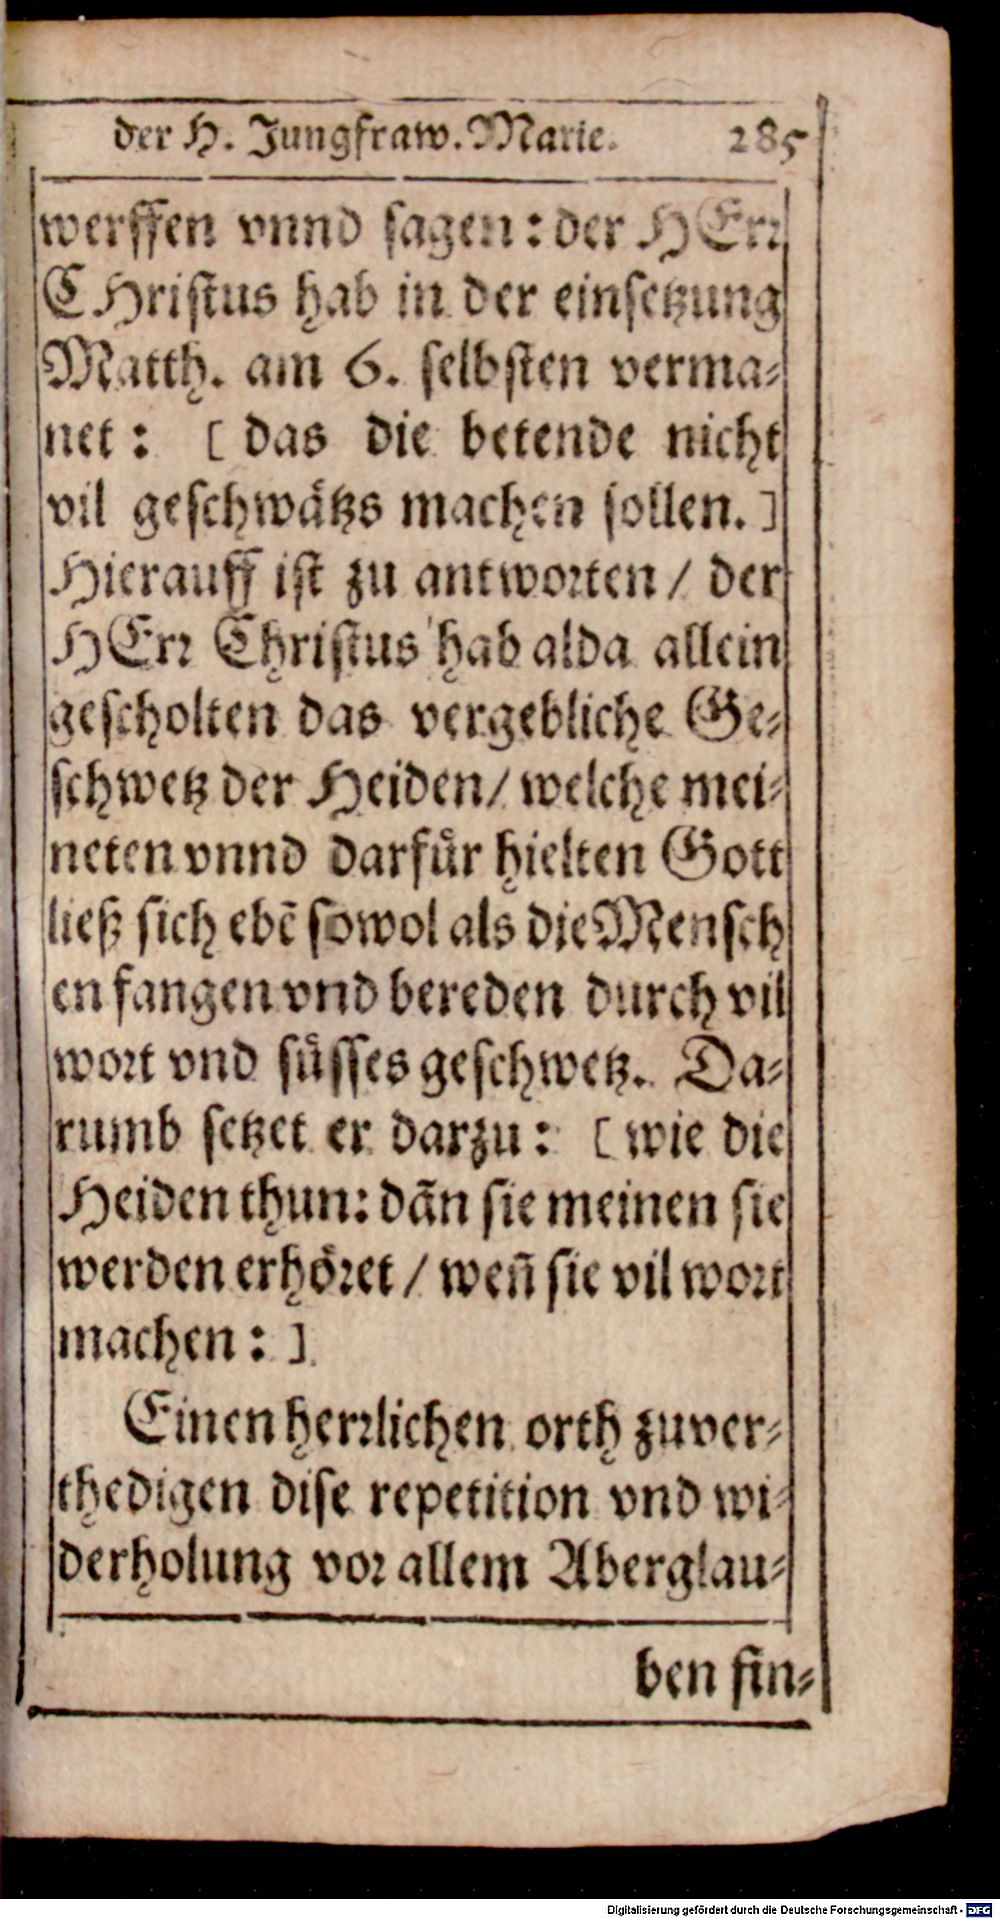 der H. Jungfraw. Marie. 285
werffen vnnd sagen: der HErr
CHristus hab in der einsetzung
Matth. am 6. selbsten verma-
net: [ das die betende nicht
vil geschwåtzs machen sollen. ]
Hierauff ist zu antworten / der
HErr Christus hab alda allein
gescholten das vergebliche Ge-
schwetz der Heiden / welche mei-
neten vnnd darfůr hielten Gott
ließ sich ebē sowol als die Mensch
en fangen vnd bereden durch vil
wort vnd sůsses geschwetz. Da-
rumb setzet er darzu: [ wie die
Heiden thun: dān sie meinen sie
werden erhöret / wen̄ sie vil wort
machen: ]
Einen herrlichen orth zuver-
thedigen dise repetition vnd wi-
derholung vor allem Aberglau-
ben fin-
Digitalisierung gefördert durch die Deutsche Forschungsgemeinschaft - DFG